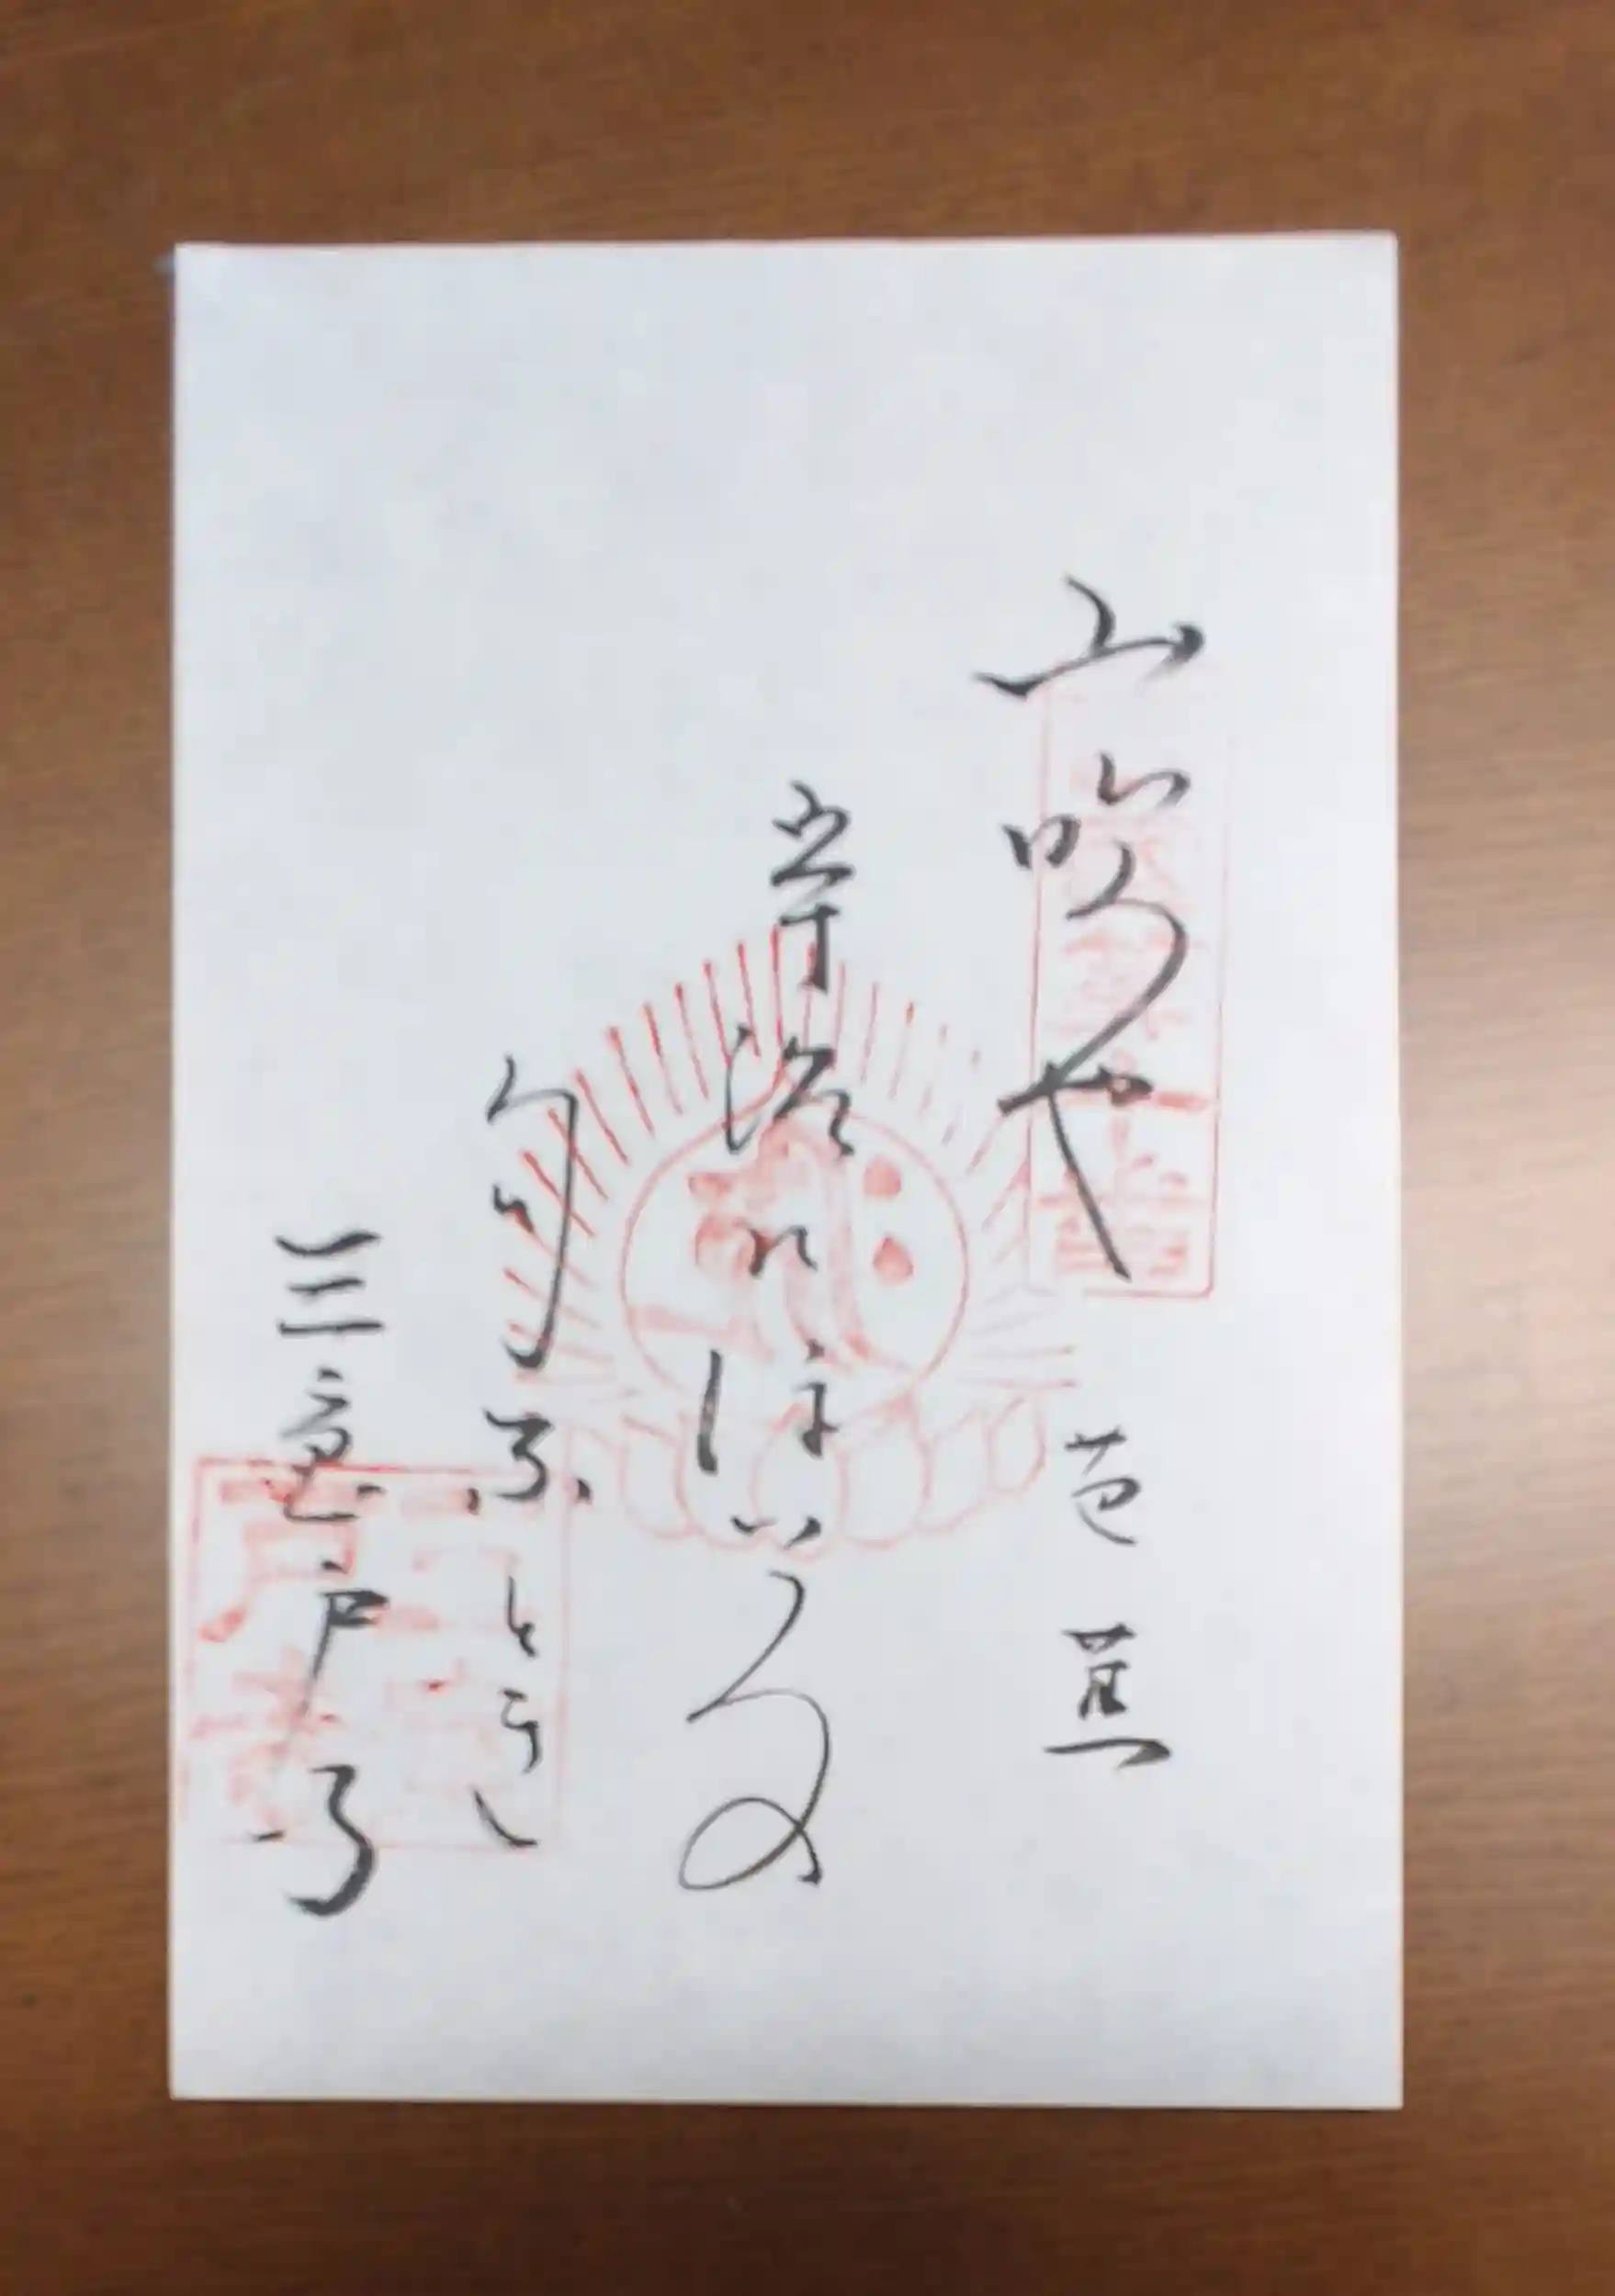 山吹や
芭蕉
宇治のほいろの
匂ふとき
三室戸寺